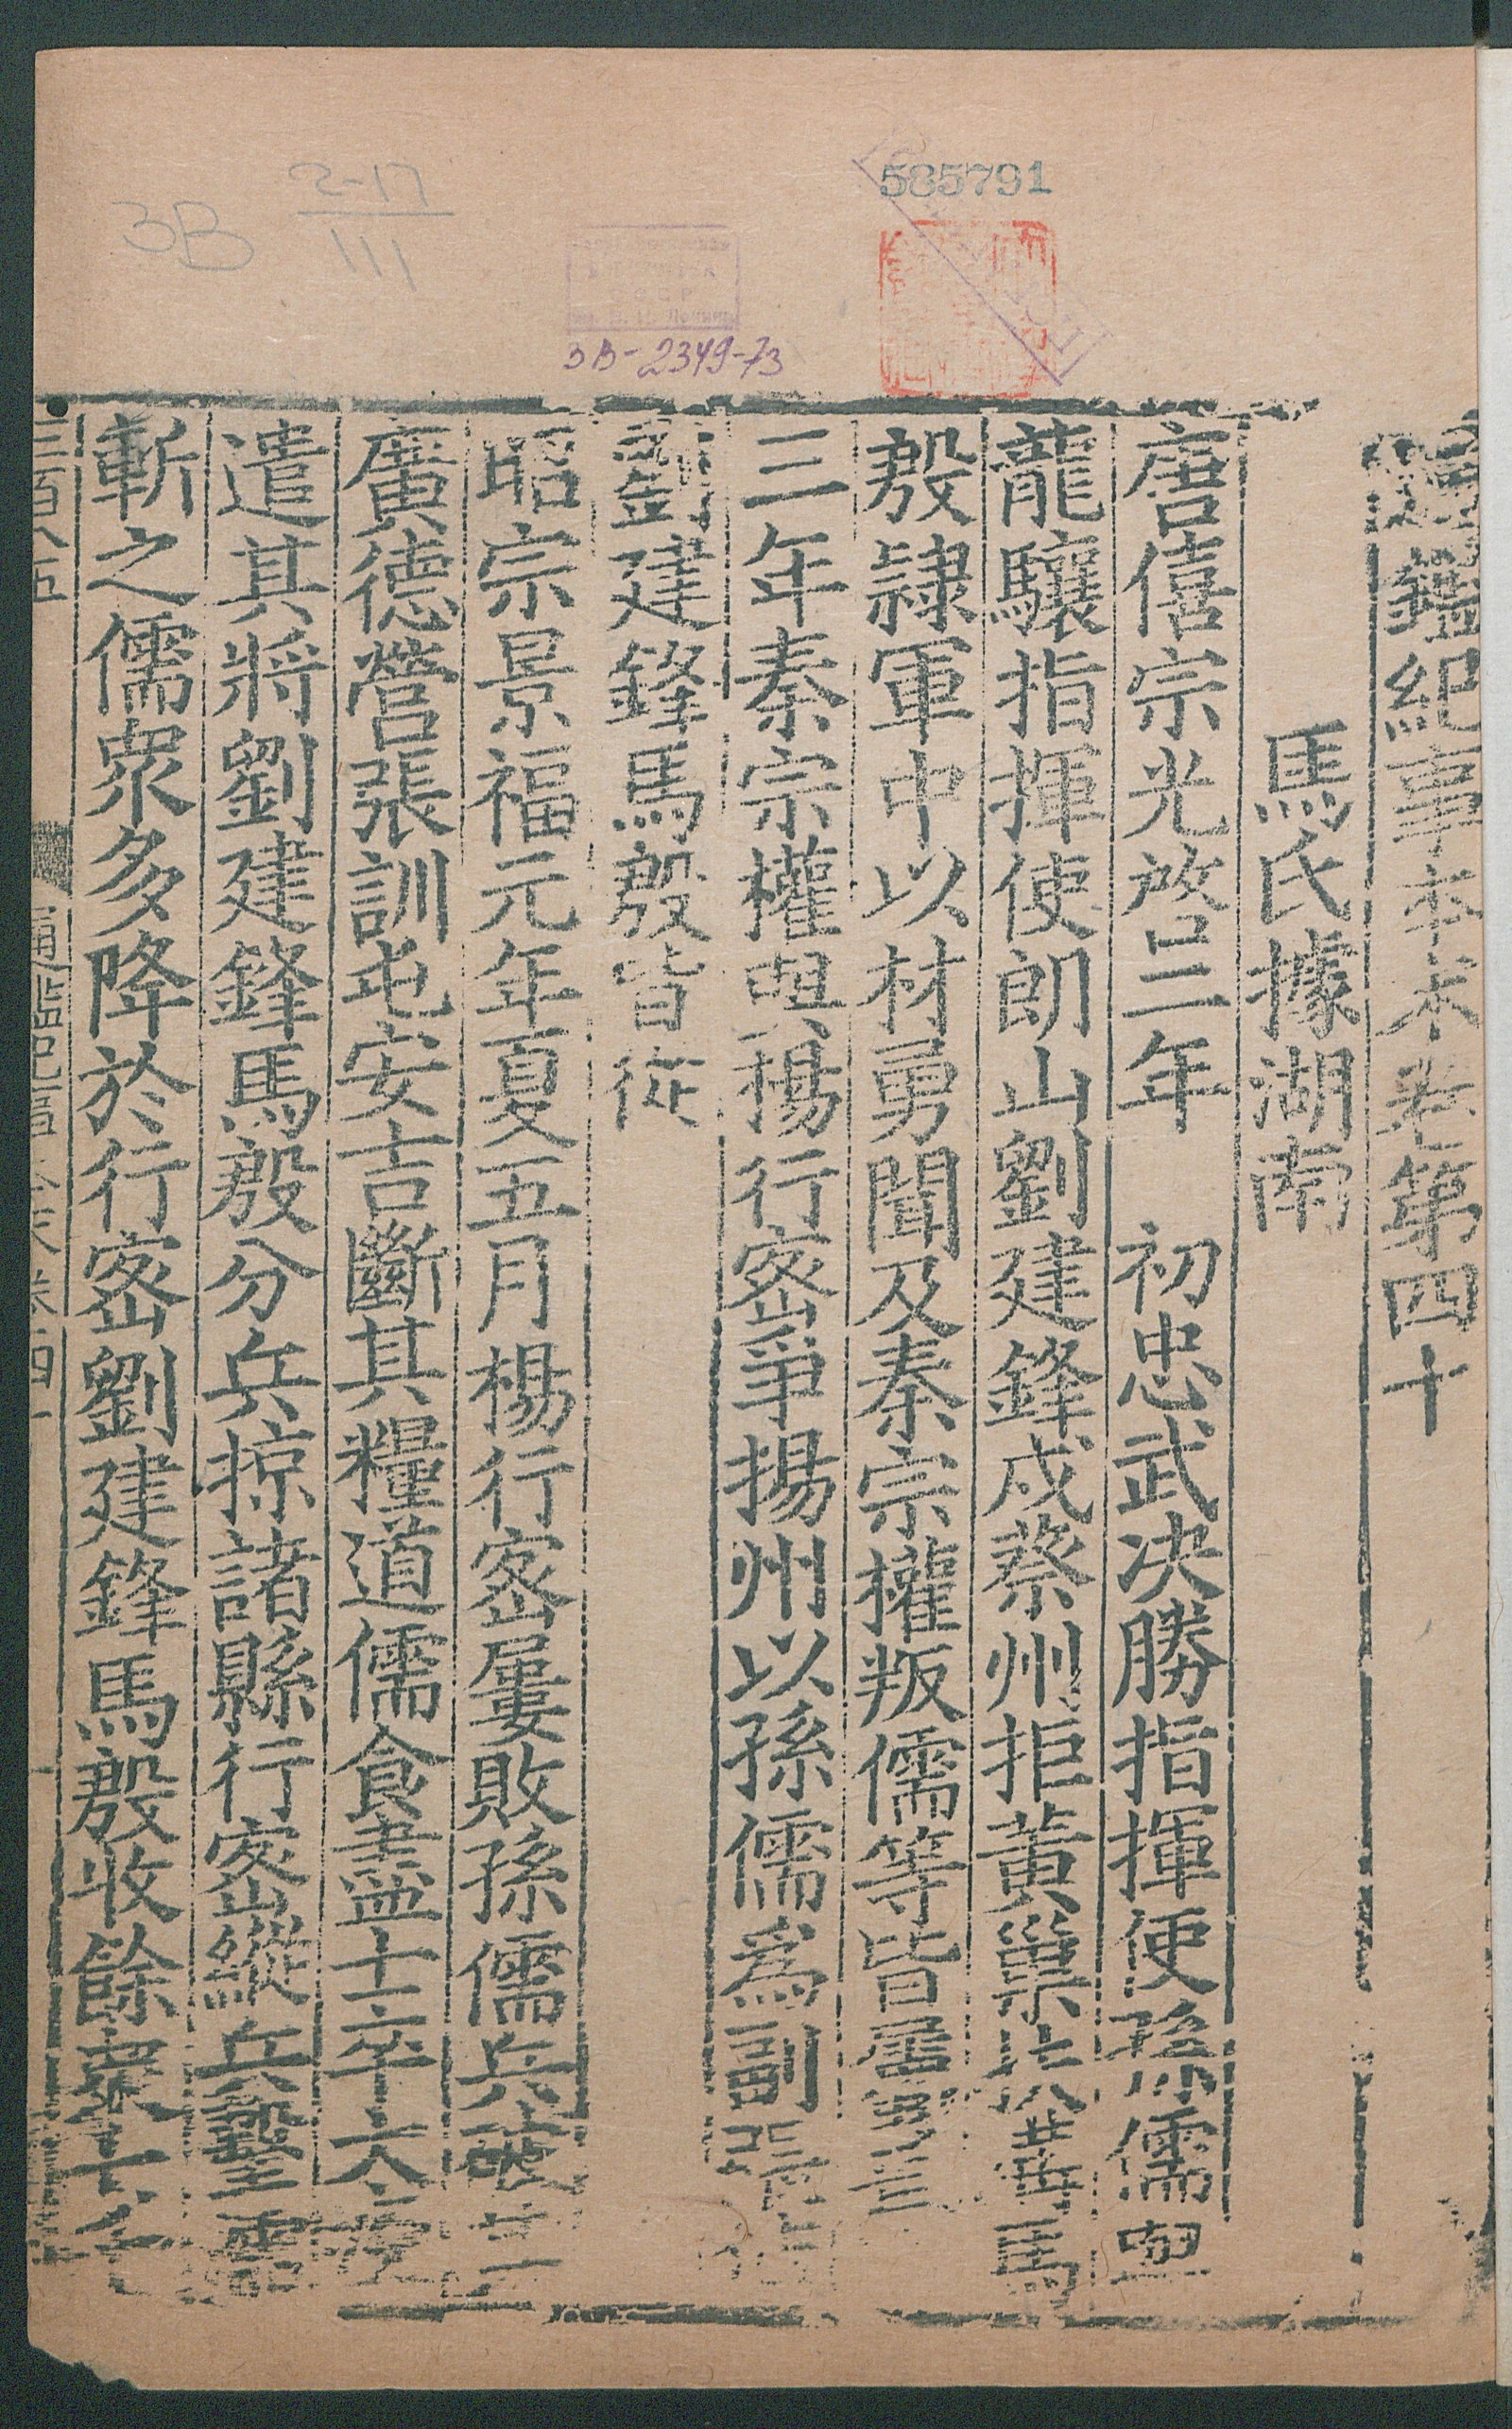 鑑紀事本末卷第四十
馬氏據湖南
唐僖宗光啓三年 初忠武决勝指揮使孫儒與
龍驤指揮使朗山劉建鋒戍蔡州拒黃巢扶溝馬
殷隷軍中以材勇聞及秦宗權叛儒等皆屬焉
三年秦宗權與楊行宻爭揚州以孫儒爲副張
劉建鋒馬殷皆從
昭宗景福元年夏五月楊行宻屢敗孫儒兵破其
廣德營張訓屯安吉斷其糧道儒食盡士卒大疫
遣其將劉建鋒馬殷分兵掠諸縣行宻縱兵擊儒
斬之儒衆多降於行宻劉建鋒馬殷收餘衆七千
三百八五
585791
3B 2-17
III
3B-2349-73